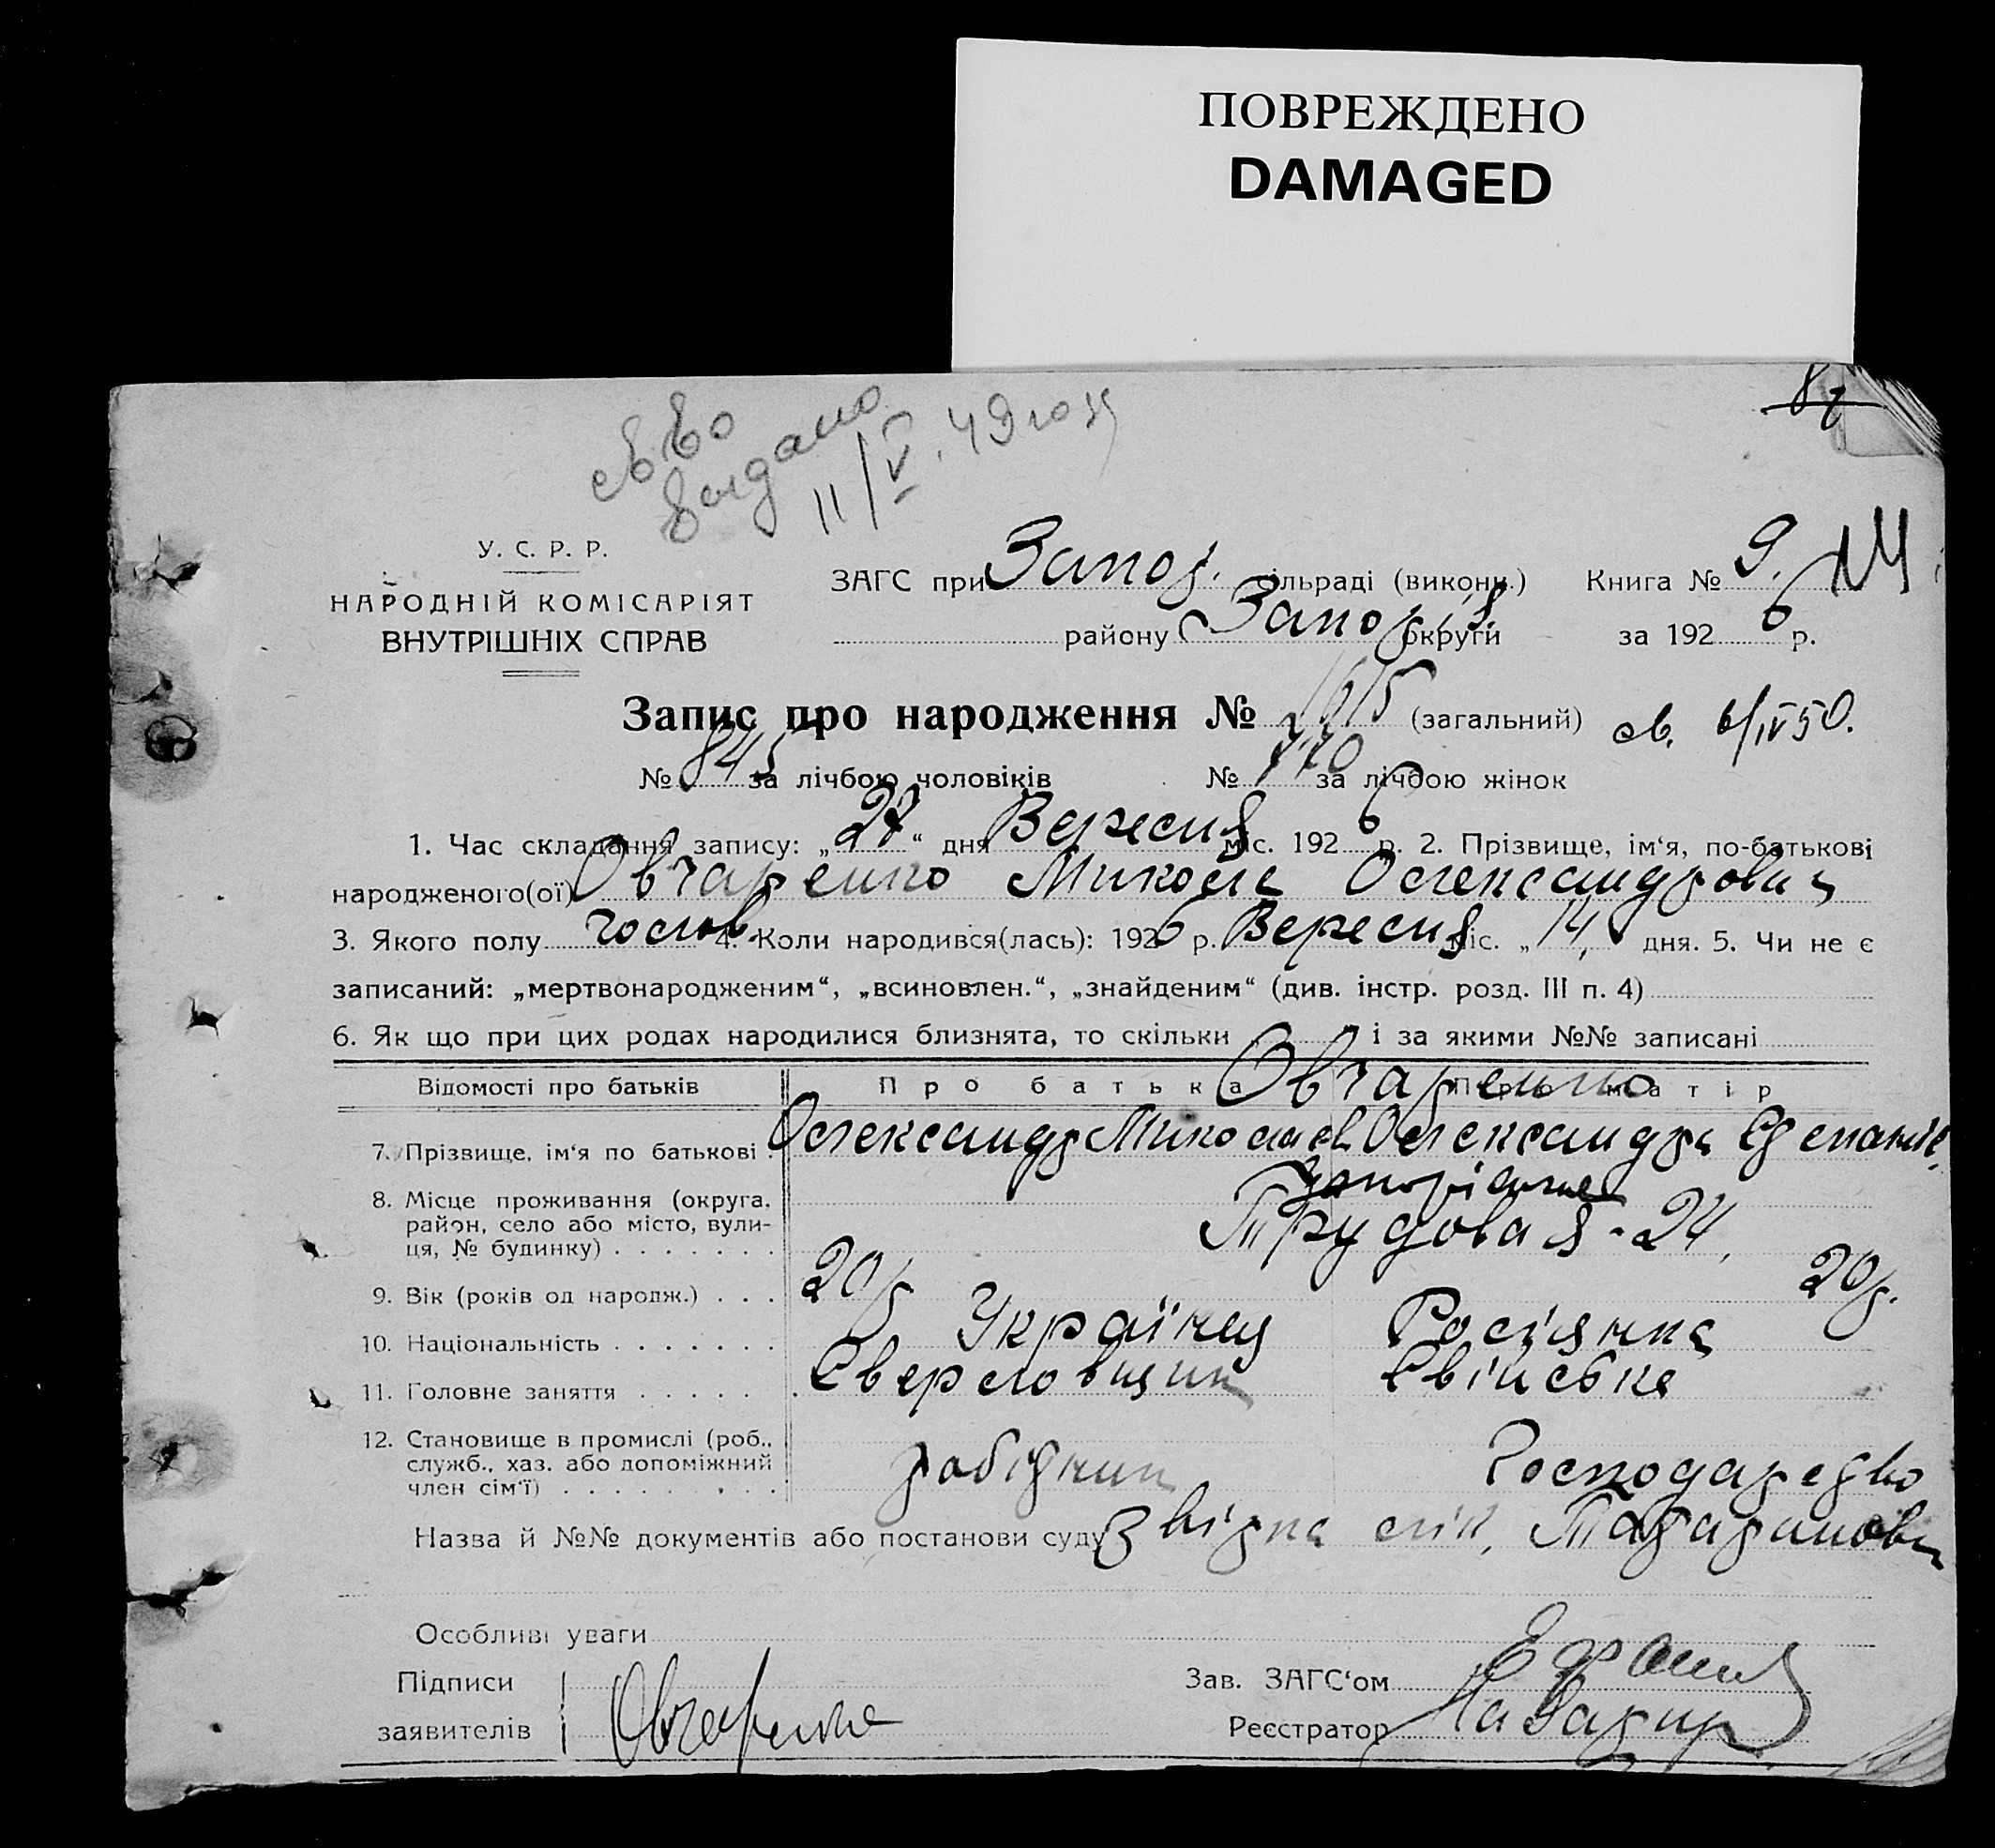 ПОВРЕЖДЕНО
DAMAGED
св-во
выдано
11/V. 49 году
У. С. Р. Р.
НАРОДНІЙ КОМІСАРІЯТ
ВНУТРІШНІХ СПРАВ
ЗАГС при Запор. сільраді (викони.) Книга № 9.
району Запоріз. округи за 1926 р.
Запис про народження № 1615 (загальний) св. 6/IV 50.
№ 845 за лічбою чоловіків № 770 за лічбою жінок
1. Час складання запису: „27“ дня Вересня міс. 1926 р. 2. Прізвище, ім‘я, по-батькові
народженого(ої) Овчаренко Микола Олександрович
3. Якого полу чолов. 4. Коли народився(лась): 1926 р. Вересня міс. „14, дня. 5. Чи не є
записаний: „мертвонародженим“, „всиновлен.“, „знайденим“ (див. інстр. розд. III п. 4)
6. Як що при цих родах народилися близнята, то скільки і за якими №№ записані
Відомості про батьків Про батька Про матір
Овчаренко
7. Прізвище, ім‘я по батькові Олександр Миколаєв Олександра Степанів.
8. Місце проживання (округа,
район, село або місто, вули-
ця, № будинку) . . . . . . .
Запоріжже
Трудовая - 24,
9. Вік (років од народж.) . . . 20 р 20 р.
10. Національність . . . . . . . Українец Росіянка
11. Головне заняття . . . . . . Сверловщик Свійське
12. Становище в промислі (роб.,
служб., хаз. або допоміжний
член сім‘ї) . . . . . . . . .
робітник Господарство
Назва й №№ документів або постанови суду Звідка лік.
Особливі уваги
Підписи
заявителів Овчаренко
Зав. ЗАГС‘ом
Реєстратор